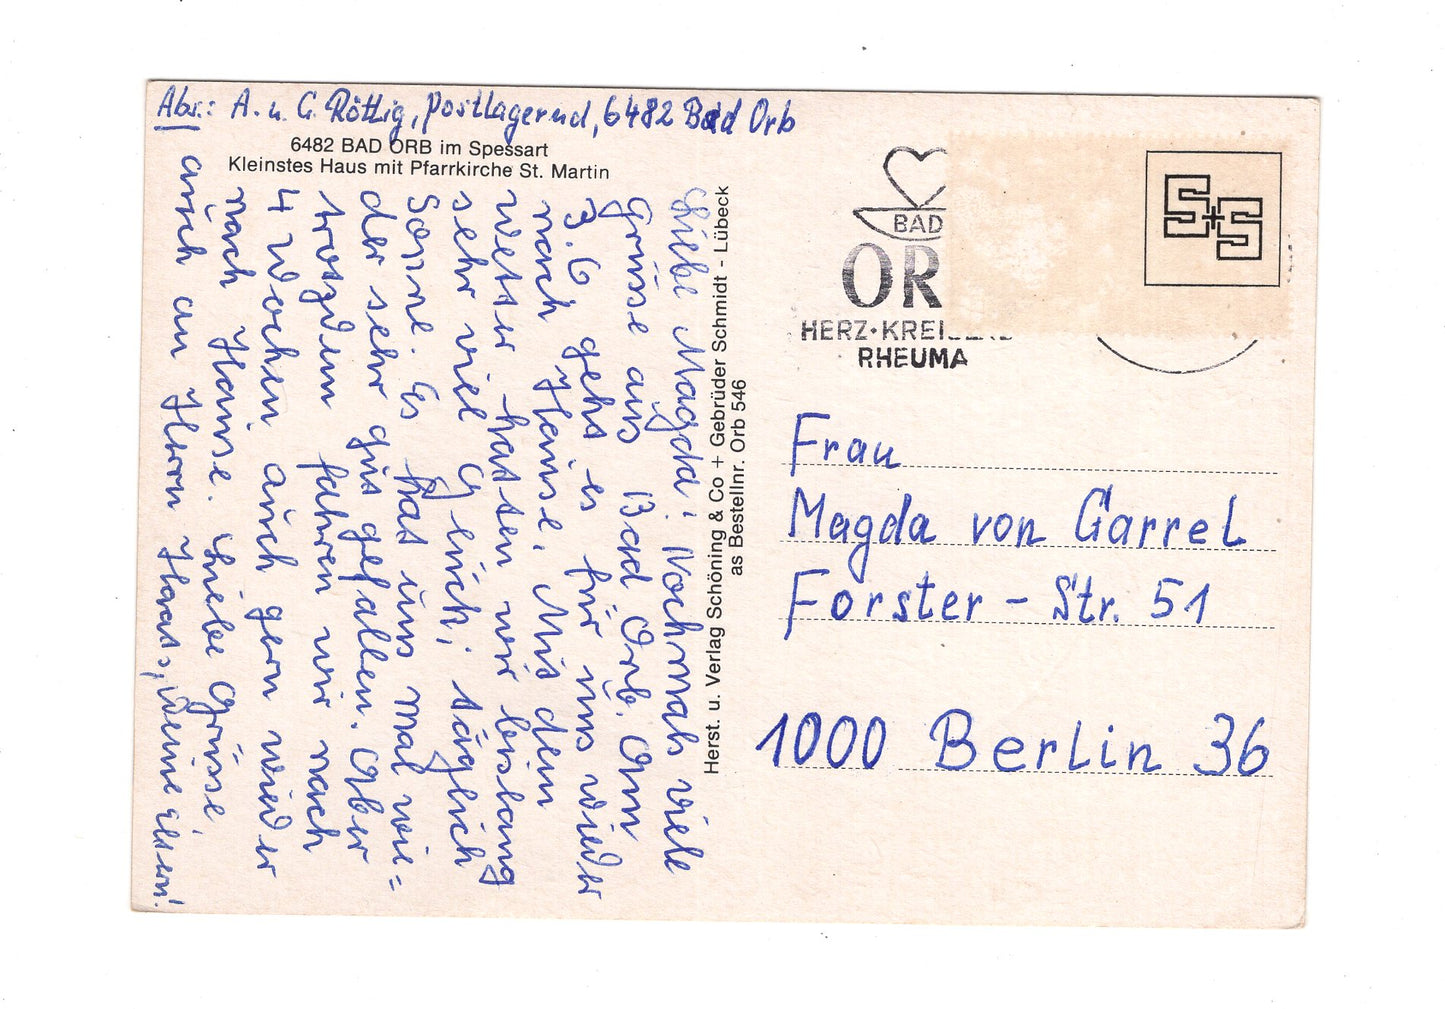 Abs.: A. u. G. Röttig, postlagernd, 6482 Bad Orb
6482 BAD ORB im Spessart
Kleinstes Haus mit Pfarrkirche St. Martin
Liebe Magda! Nochmals viele
Grüsse aus Bad Orb. Am
3.6. geht es für uns wieder
nach Hause. Mit dem
Wetter hatten wir bislang
sehr viel Glück, täglich
Sonne. Es hat uns mal wie=
der sehr gut gefallen. Aber
trotzdem fahren wir nach
4 Wochen auch gern wieder
nach Hause. Liebe Grüsse,
auch an Herrn Haass, Deine Eltern!
Herst. u. Verlag Schöning & Co + Gebrüder Schmidt - Lübeck
as Bestellnr. Orb 546
BAD
OR
HERZ·KREISL
RHEUMA
S+S
Frau
Magda von Garrel
Forster-Str. 51
1000 Berlin 36